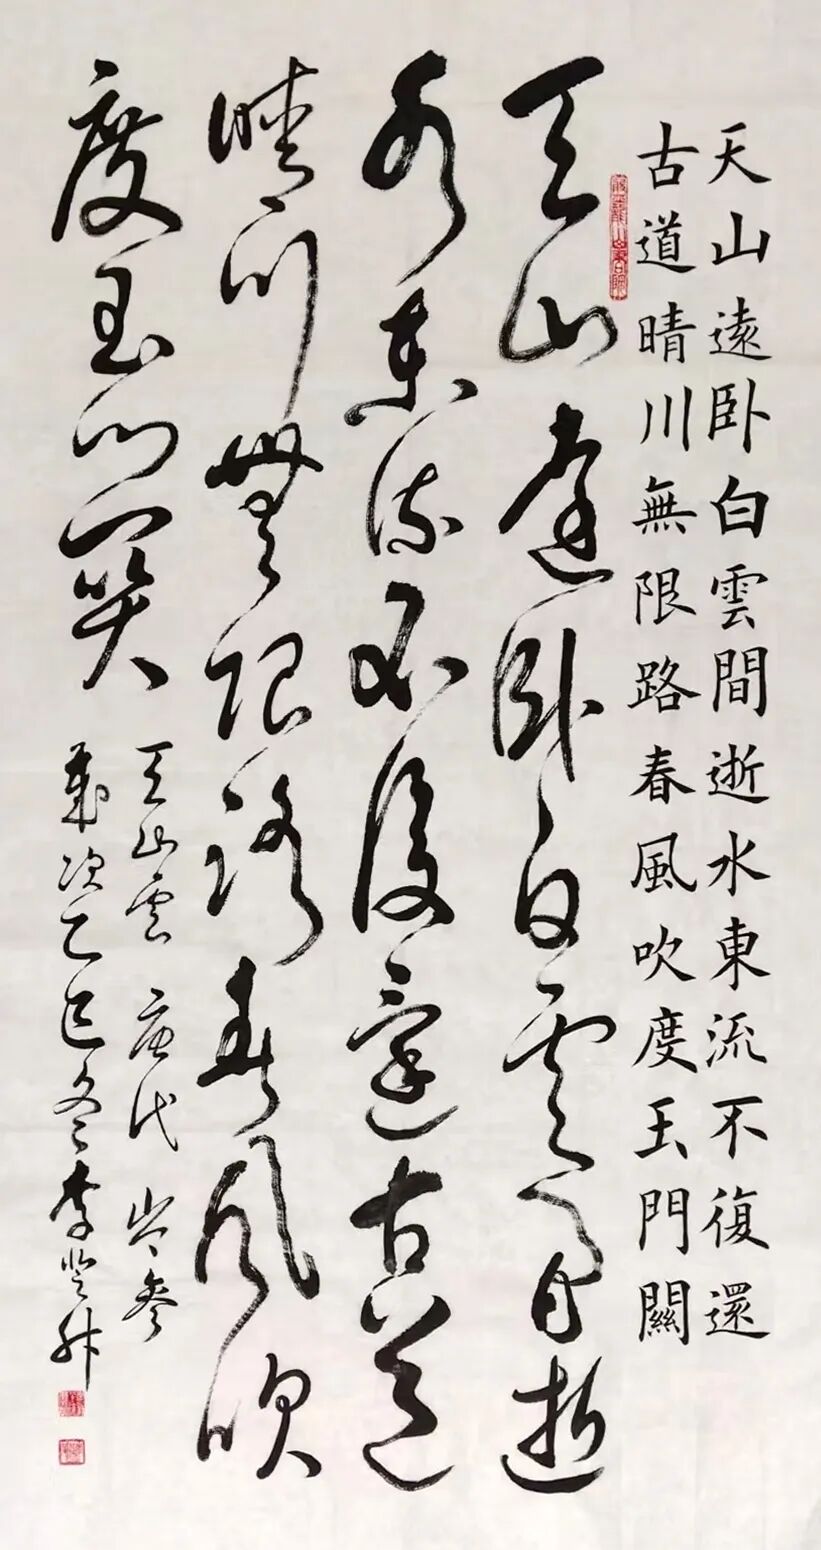 天山遠卧白雲間逝水東流不復還
古道晴川無限路春風吹度玉門關
天山遠卧白雲間逝
水東流不復還古道
晴川無限路春風吹
度玉門關
天山雲 唐代 岑參
歲次乙巳冬李登舟